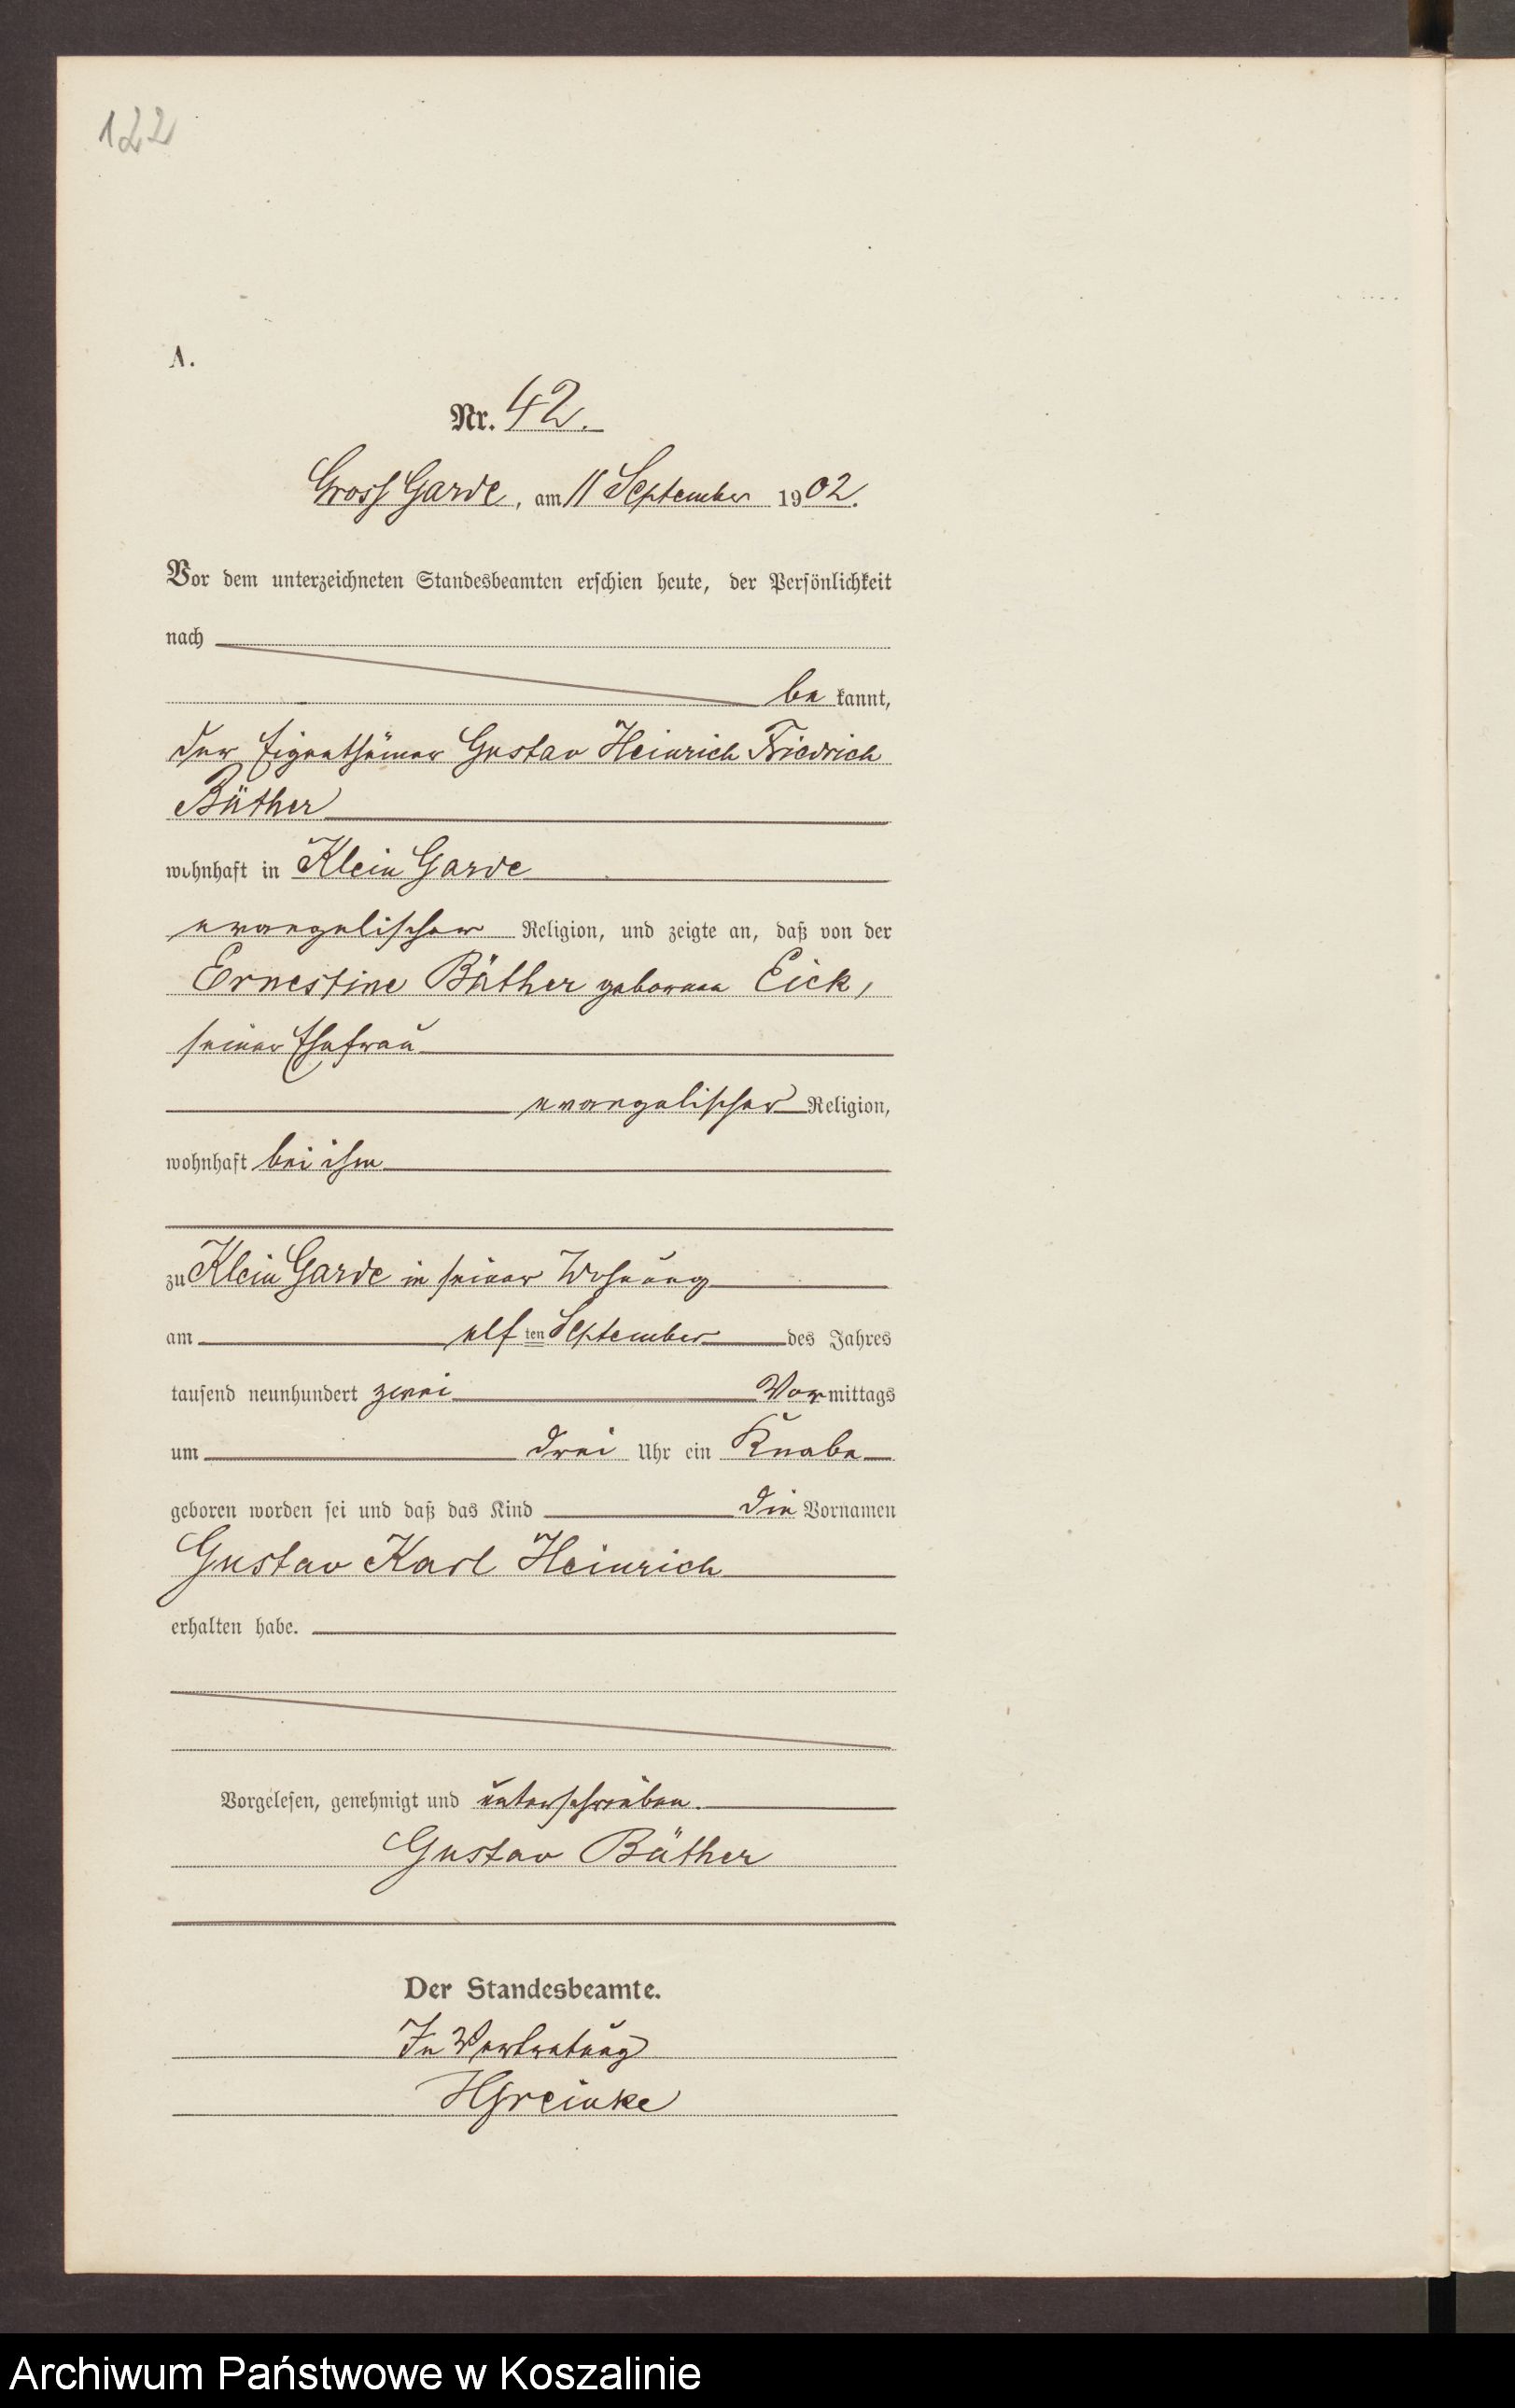 122
A.
Nr. 42.
Gross Garde, am 11 September 1902.
Vor dem unterzeichneten Standesbeamten erschien heute, der Persönlichkeit
nach
be kannt,
der Eigenthümer Gustav Heinrich Friedrich
Büther
wohnhaft in Klein Garde
evangelischer Religion, und zeigte an, daß von der
Ernestine Büther geborenen Eick,
seiner Ehefrau
evangelischer Religion,
wohnhaft bei ihm
zu Klein Garde in seiner Wohnung
am elf ten September des Jahres
tausend neunhundert zwei Vormittags
um drei Uhr ein Knabe
geboren worden sei und daß das Kind die Vornamen
Gustav Karl Heinrich
erhalten habe.
Vorgelesen, genehmigt und unterschrieben.
Gustav Büther
Der Standesbeamte.
In Vertretung
HGreinke
Archiwum Państwowe w Koszalinie